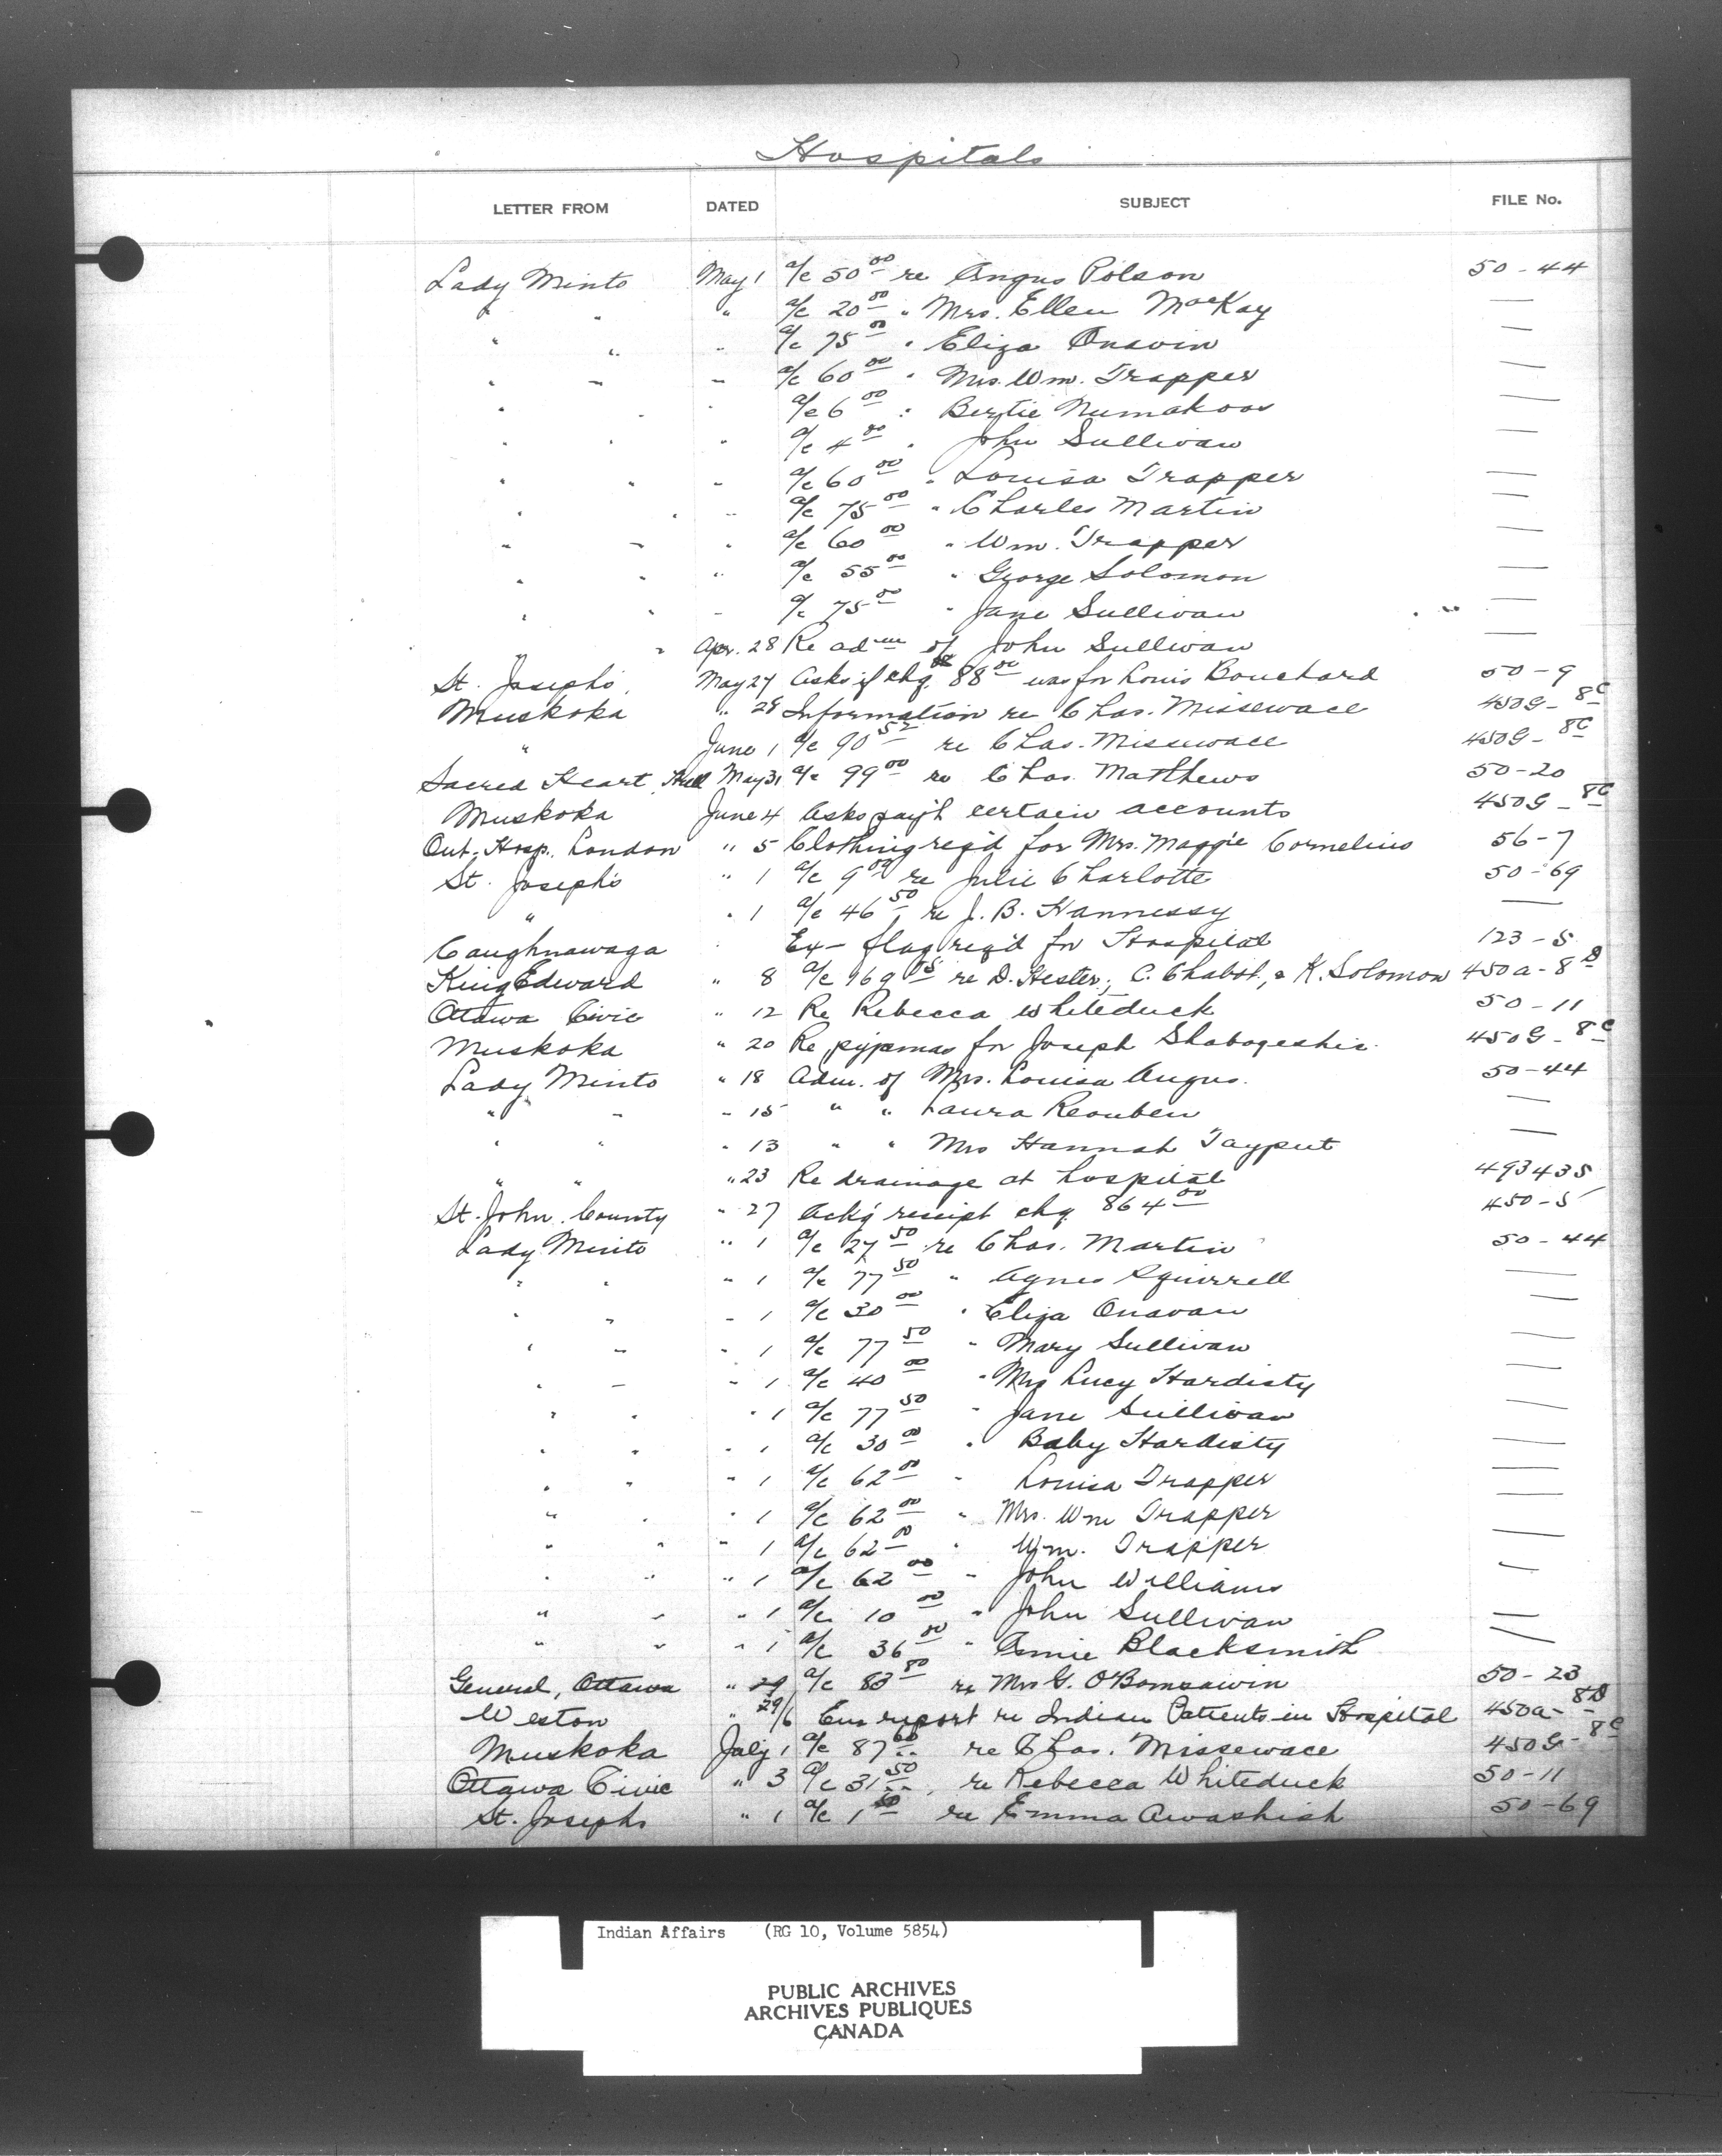 Hospitals
LETTER FROM DATED SUBJECT FILE No.
Lady Minto May 1 a/c 50 00 re Angus Polson 50-44
" " " a/c 20 00 " Mrs. Ellen MacKay —
" " " a/c 75 00 " Eliza Onavin —
" " " a/c 60 00 " Mrs. Wm. Trapper —
" " " a/c 6 00 " Bertie Numakoos —
" " " a/c 4 00 " John Sullivan —
" " " a/c 60 00 " Louisa Trapper —
" " " a/c 75 00 " Charles Martin —
" " " a/c 60 00 " Wm. Trapper —
" " " a/c 55 00 " George Solomon —
" " " a/c 75 00 " Jane Sullivan —
" " Apr. 28 Re adm of John Sullivan —
St. Joseph's May 27 Asks if chq. 88 00 was for Louis Bouchard 50-9
Muskoka " 28 Information re Chas. Missewace 450G-8C
" June 1 a/c 90 52 re Chas. Missewace 450G-8C
Sacred Heart, Hull May 31 a/c 99 00 re Chas. Matthews 50-20
Muskoka June 4 Asks pay't certain accounts 450G-8C
Ont. Hosp. London " 5 Clothing req'd for Mrs. Maggie Cornelius 56-7
St. Joseph's " 1 a/c 9 00 re Julie Charlotte 50-69
" " 1 a/c 46 50 re J. B. Hannessy —
Caughnawaga " Ex- flag req'd for Hospital 123-5
King Edward " 8 a/c 169 75 re D. Hester, C. Chabot, & K. Solomon 450a-8D
Ottawa Civic " 12 Re Rebecca Whiteduck 50-11
Muskoka " 20 Re pyjamas for Joseph Shabogeshic. 450G-8C
Lady Minto " 18 Adm. of Mrs. Louisa Angus. 50-44
" " " 15 " " Laura Reouben —
" " " 13 " " Mrs Hannah Tayput —
" " " 23 Re drainage at hospital 493435
St. John County " 27 Ack'g receipt chq. 864 00 450-5
Lady Minto " 1 a/c 27 50 re Chas. Martin 50-44
" " " 1 a/c 77 50 " Agnes Squirrell —
" " " 1 a/c 30 00 " Eliza Onavan —
" " " 1 a/c 77 50 " Mary Sullivan —
" " " 1 a/c 40 00 " Mrs Lucy Hardisty —
" " " 1 a/c 77 50 " Jane Sullivan —
" " " 1 a/c 30 00 " Baby Hardisty —
" " " 1 a/c 62 00 " Louisa Trapper —
" " " 1 a/c 62 00 " Mrs. Wm Trapper —
" " " 1 a/c 62 00 " Wm. Trapper —
" " " 1 a/c 62 00 " John Williams —
" " " 1 a/c 10 00 " John Sullivan —
" " " 1 a/c 36 00 " Annie Blacksmith —
General, Ottawa " 29 a/c 83 80 re Mrs G. O'Bomsawin 50-23
Weston " 29/6 Enc report re Indian Patients in Hospital 450a-8D
Muskoka July 1 a/c 87 60 re Chas. Missewace 450G-8C
Ottawa Civic " 3 a/c 31 50 re Rebecca Whiteduck 50-11
St. Josephs " 1 a/c 1 re Emma Awashish 50-69
Indian Affairs (RG 10, Volume 5854)
PUBLIC ARCHIVES
ARCHIVES PUBLIQUES
CANADA